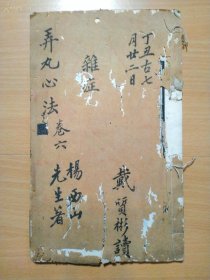 丁丑古七
月廿二日
戴質彬讀
雜症
楊西山
先生著
弄丸心法 卷六